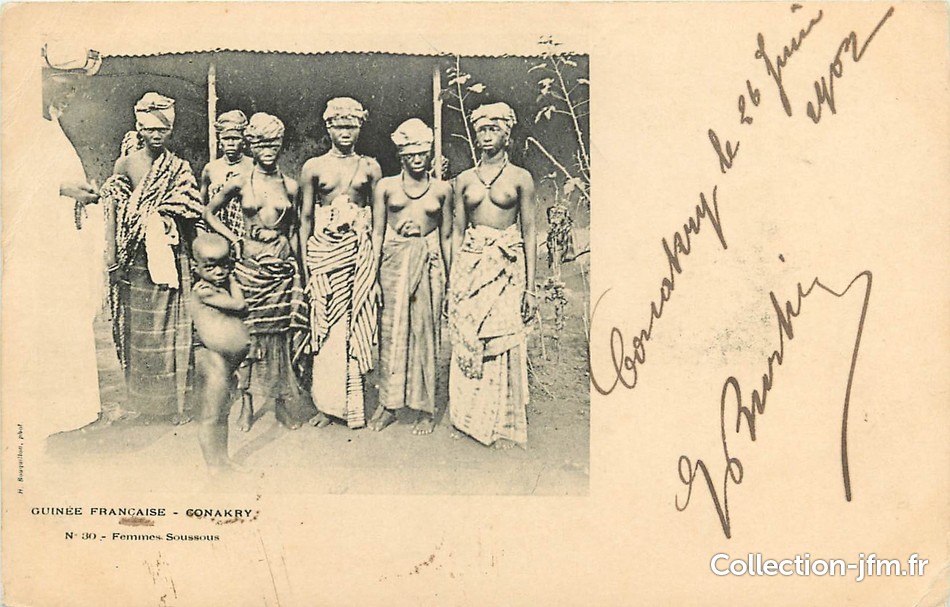 Conakry le 26 Juin
1902
H. Bouquillon, phot.
GUINÉE FRANÇAISE - CONAKRY
N° 30 - Femmes Soussous
Collection-jfm.fr